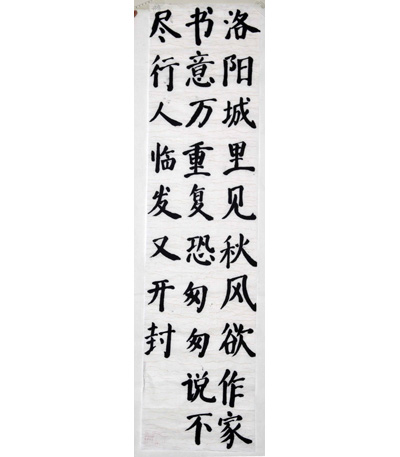 洛阳城里见秋风欲作家
书意万重复恐匆匆说不
尽行人临发又开封